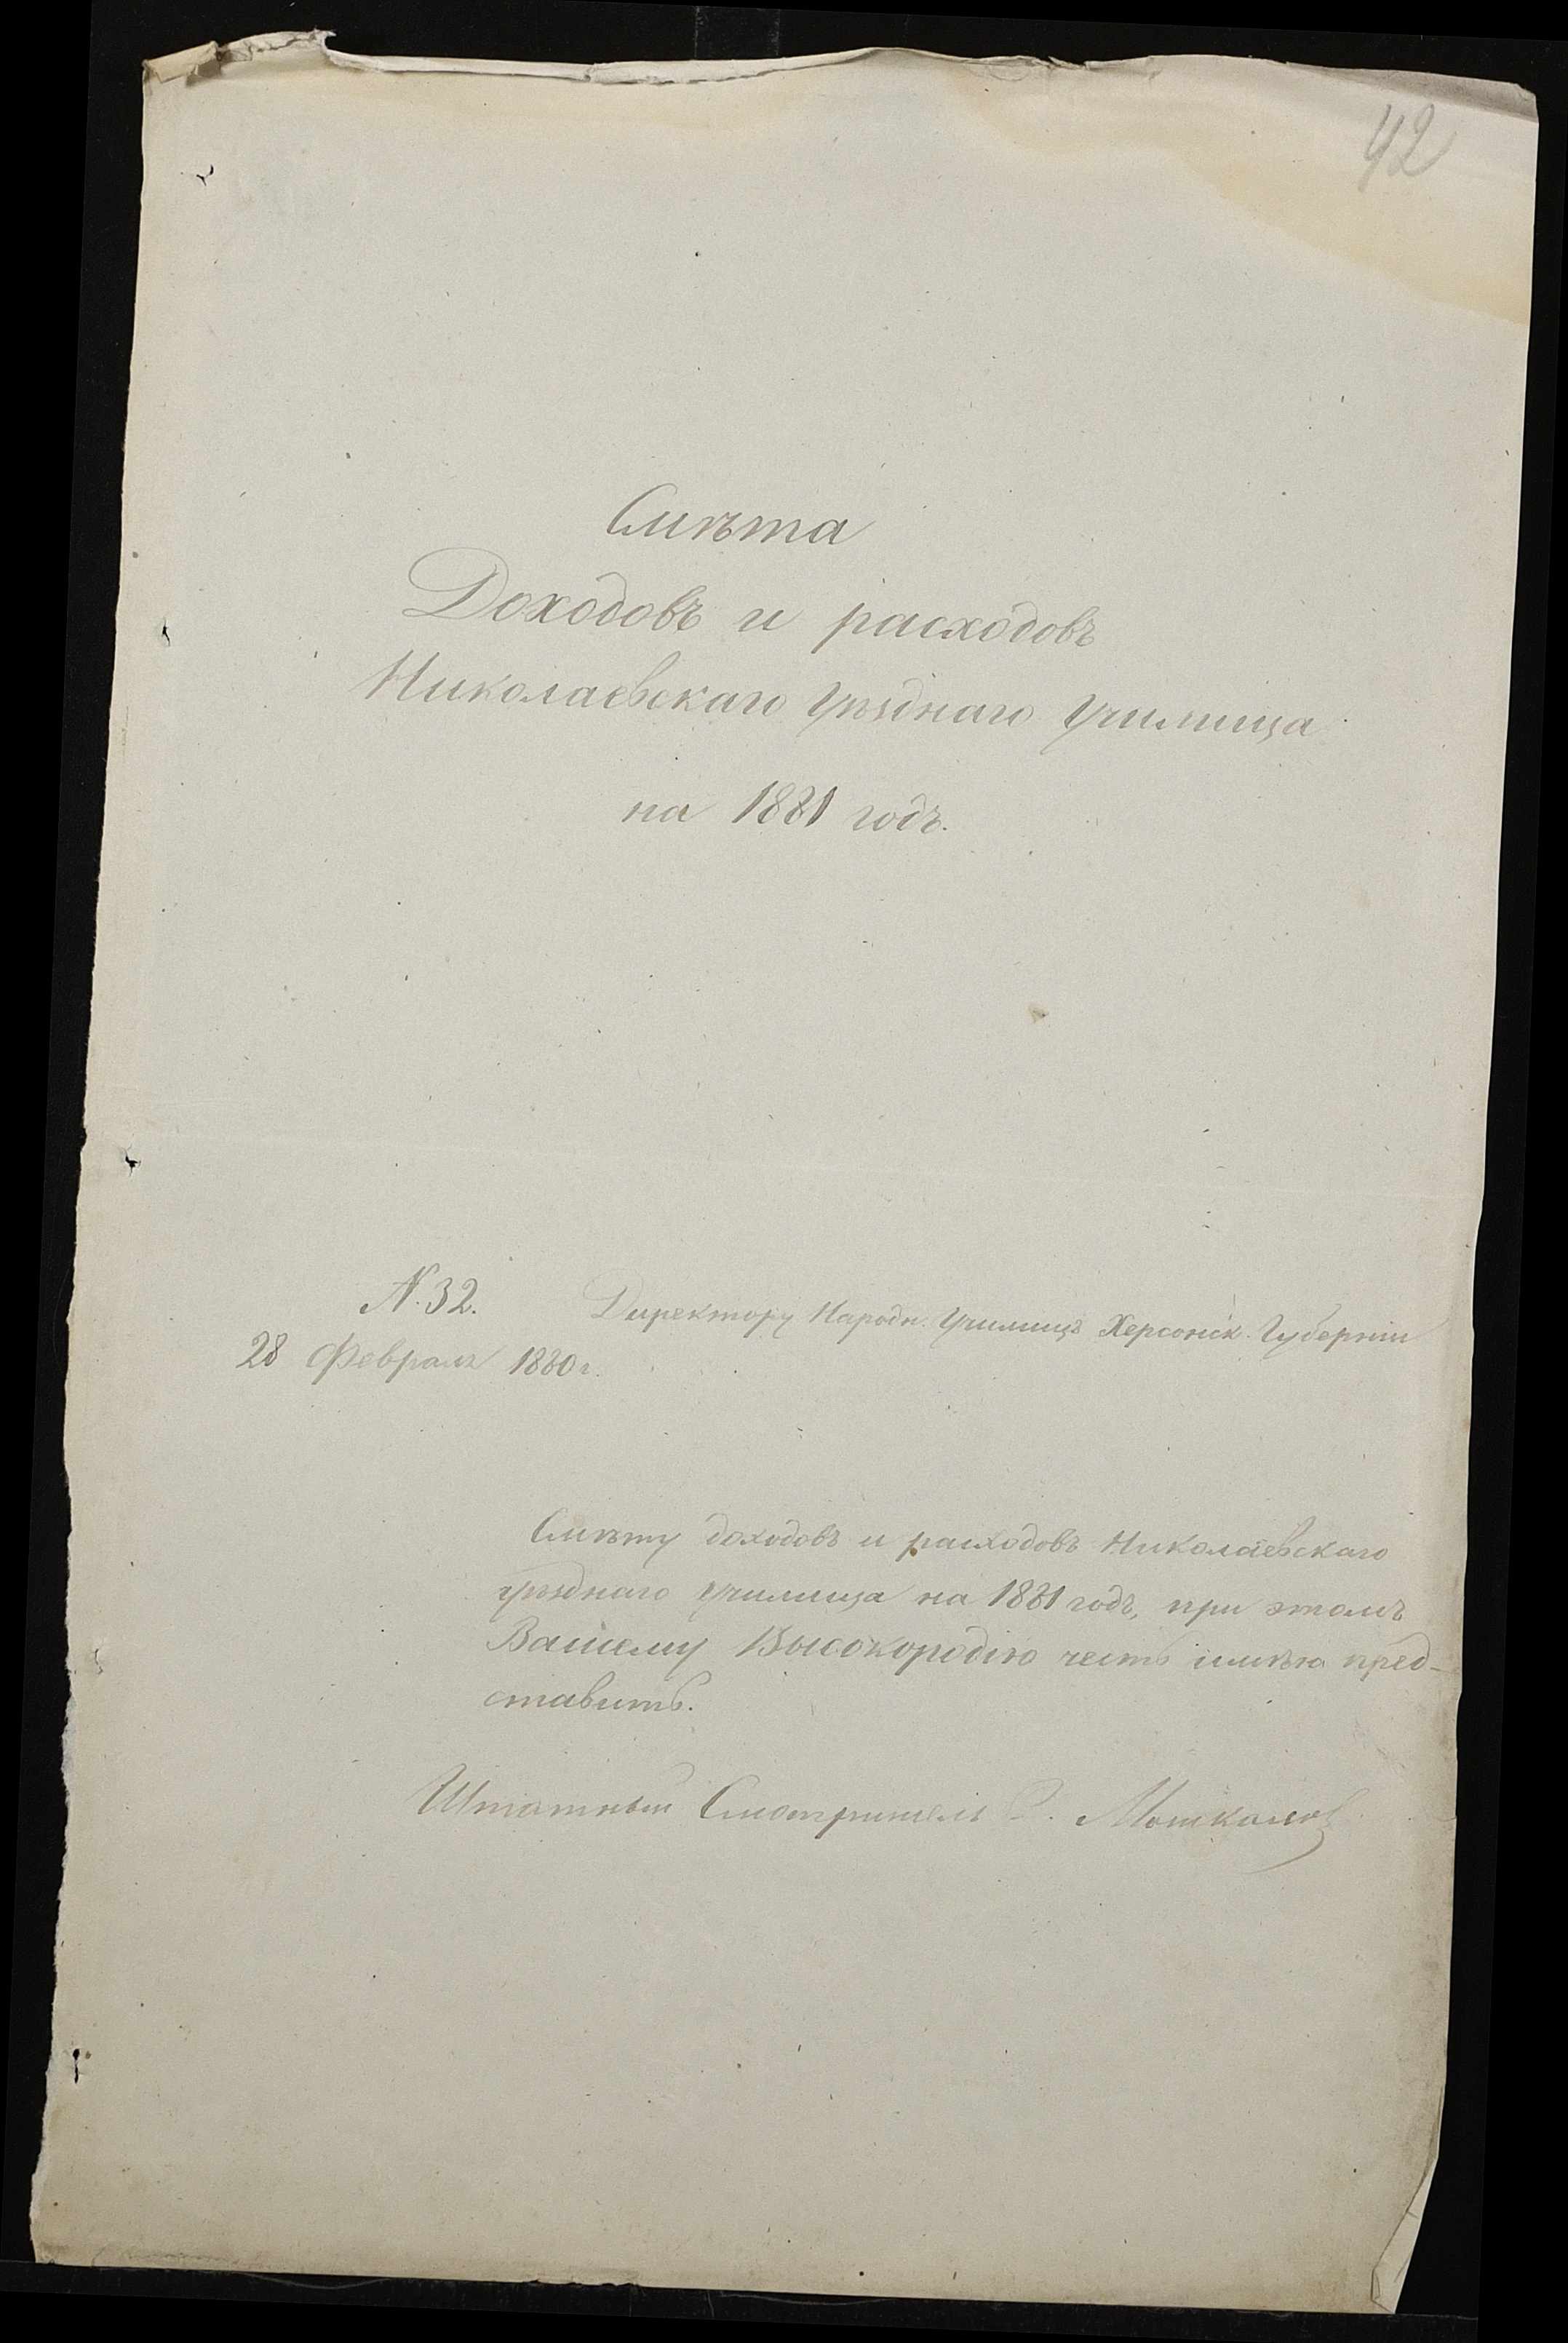 42
Смѣта
Доходовъ и расходовъ
Николаевскаго Уѣзднаго Училища
на 1881 годъ.
N. 32.
Директору Народн. Училищъ Херсонск. Губерніи
28 Февраля 1880 г.
Смѣту доходовъ и расходовъ Николаевскаго
уѣзднаго училища на 1881 годъ, при этомъ
Вашему Высокородію честь имѣю пред-
ставить.
Штатный Смотритель